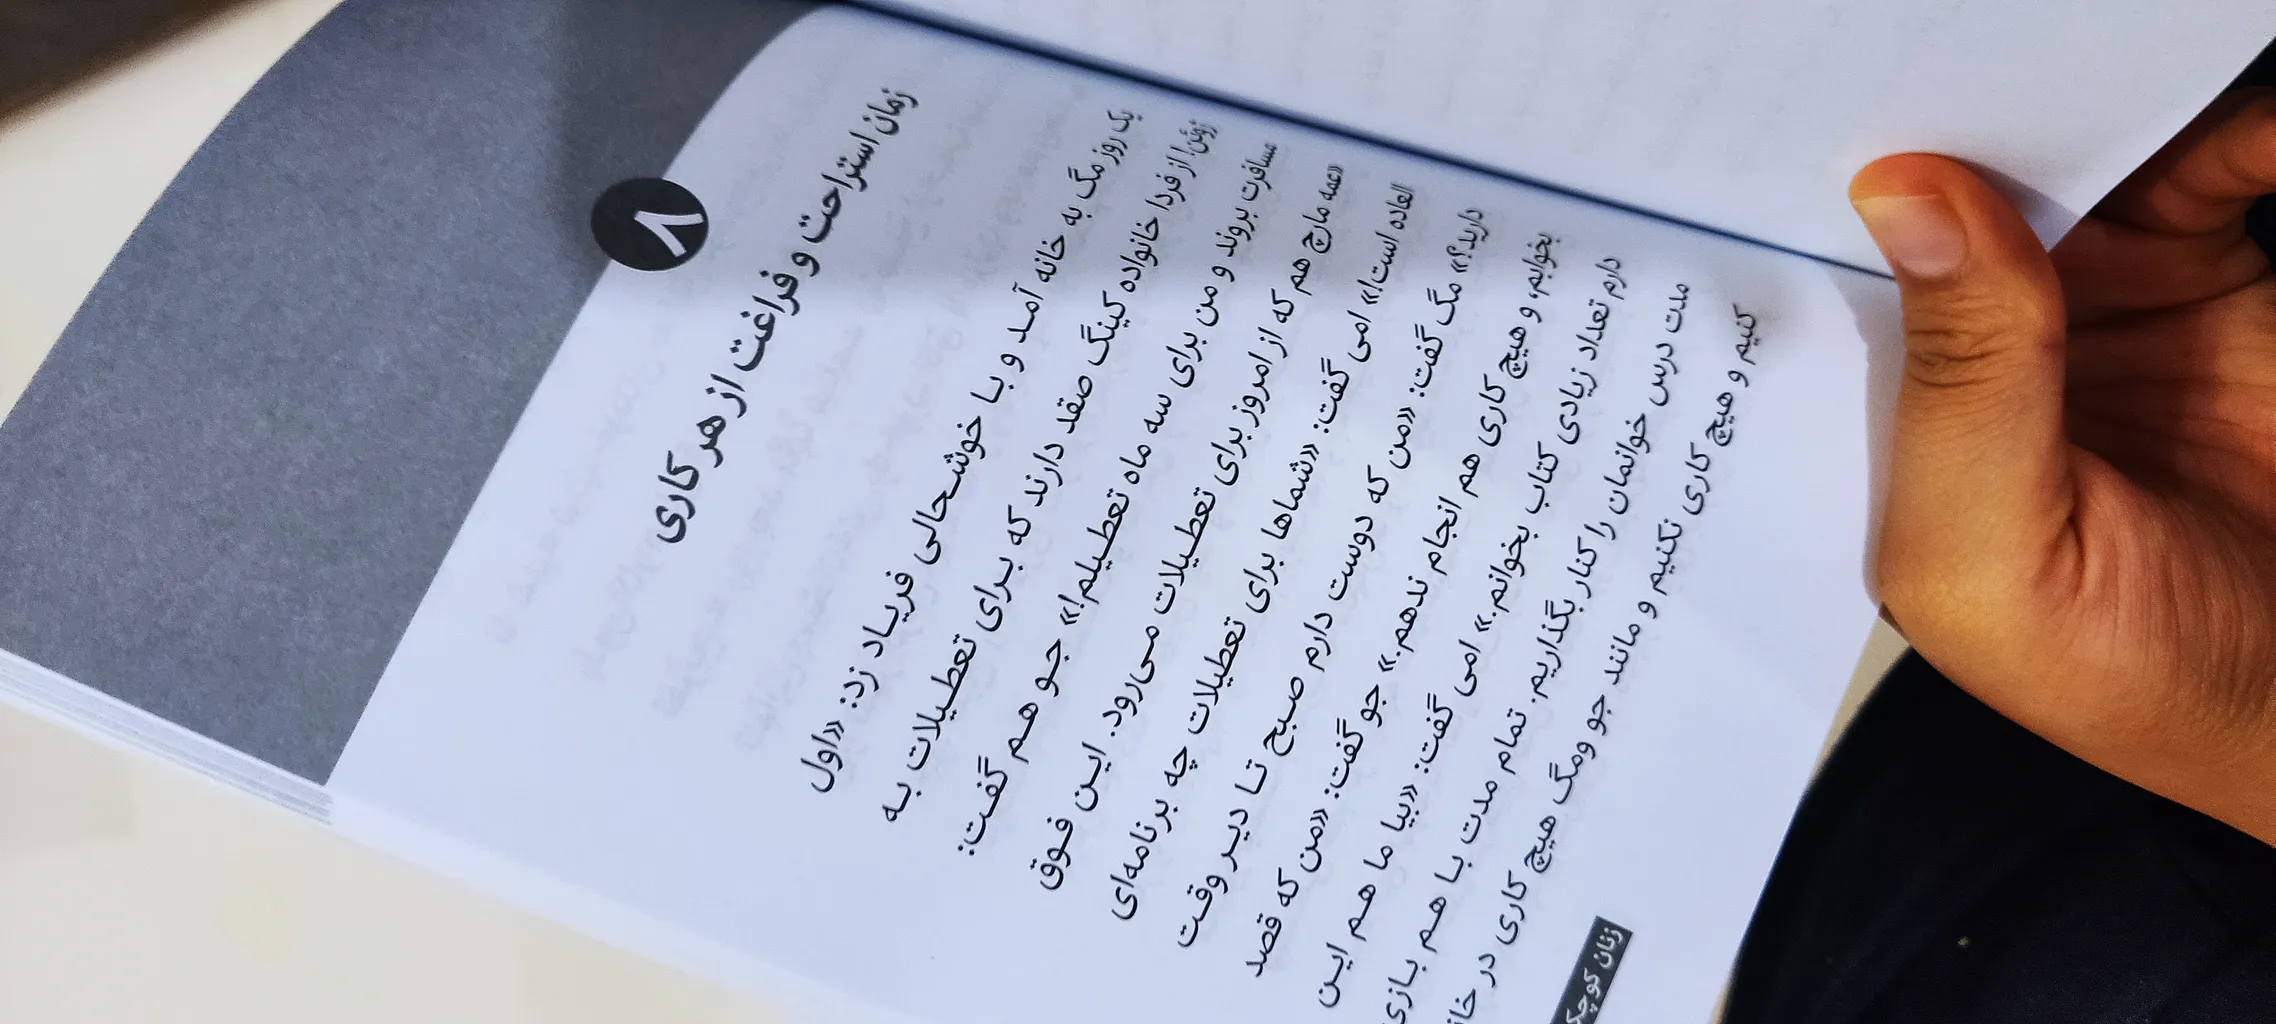 ۸
زمان استراحت و فراغت از هر کاری
یک روز مگ به خانه آمد و با خوشحالی فریاد زد: «اول
ژوئن! از فردا خانواده کینگ صقد دارند که برای تعطیلات به
مسافرت بروند و من برای سه ماه تعطیلم!» جو هم گفت:
«عمه مارچ هم که از امروز برای تعطیلات می‌رود. این فوق
العاده است!» امی گفت: «شماها برای تعطیلات چه برنامه‌ای
دارید؟!» مگ گفت: «من که دوست دارم صبح تا دیر وقت
بخوابم، و هیچ کاری هم انجام ندهم.» جو گفت: «من که قصد
دارم تعداد زیادی کتاب بخوانم.» امی گفت: «بیا ما هم این
مدت درس خوانمان را کنار بگذاریم. تمام مدت با هم بازی
کنیم و هیچ کاری نکنیم و مانند جو ومگ هیچ کاری در
زنان کوچک